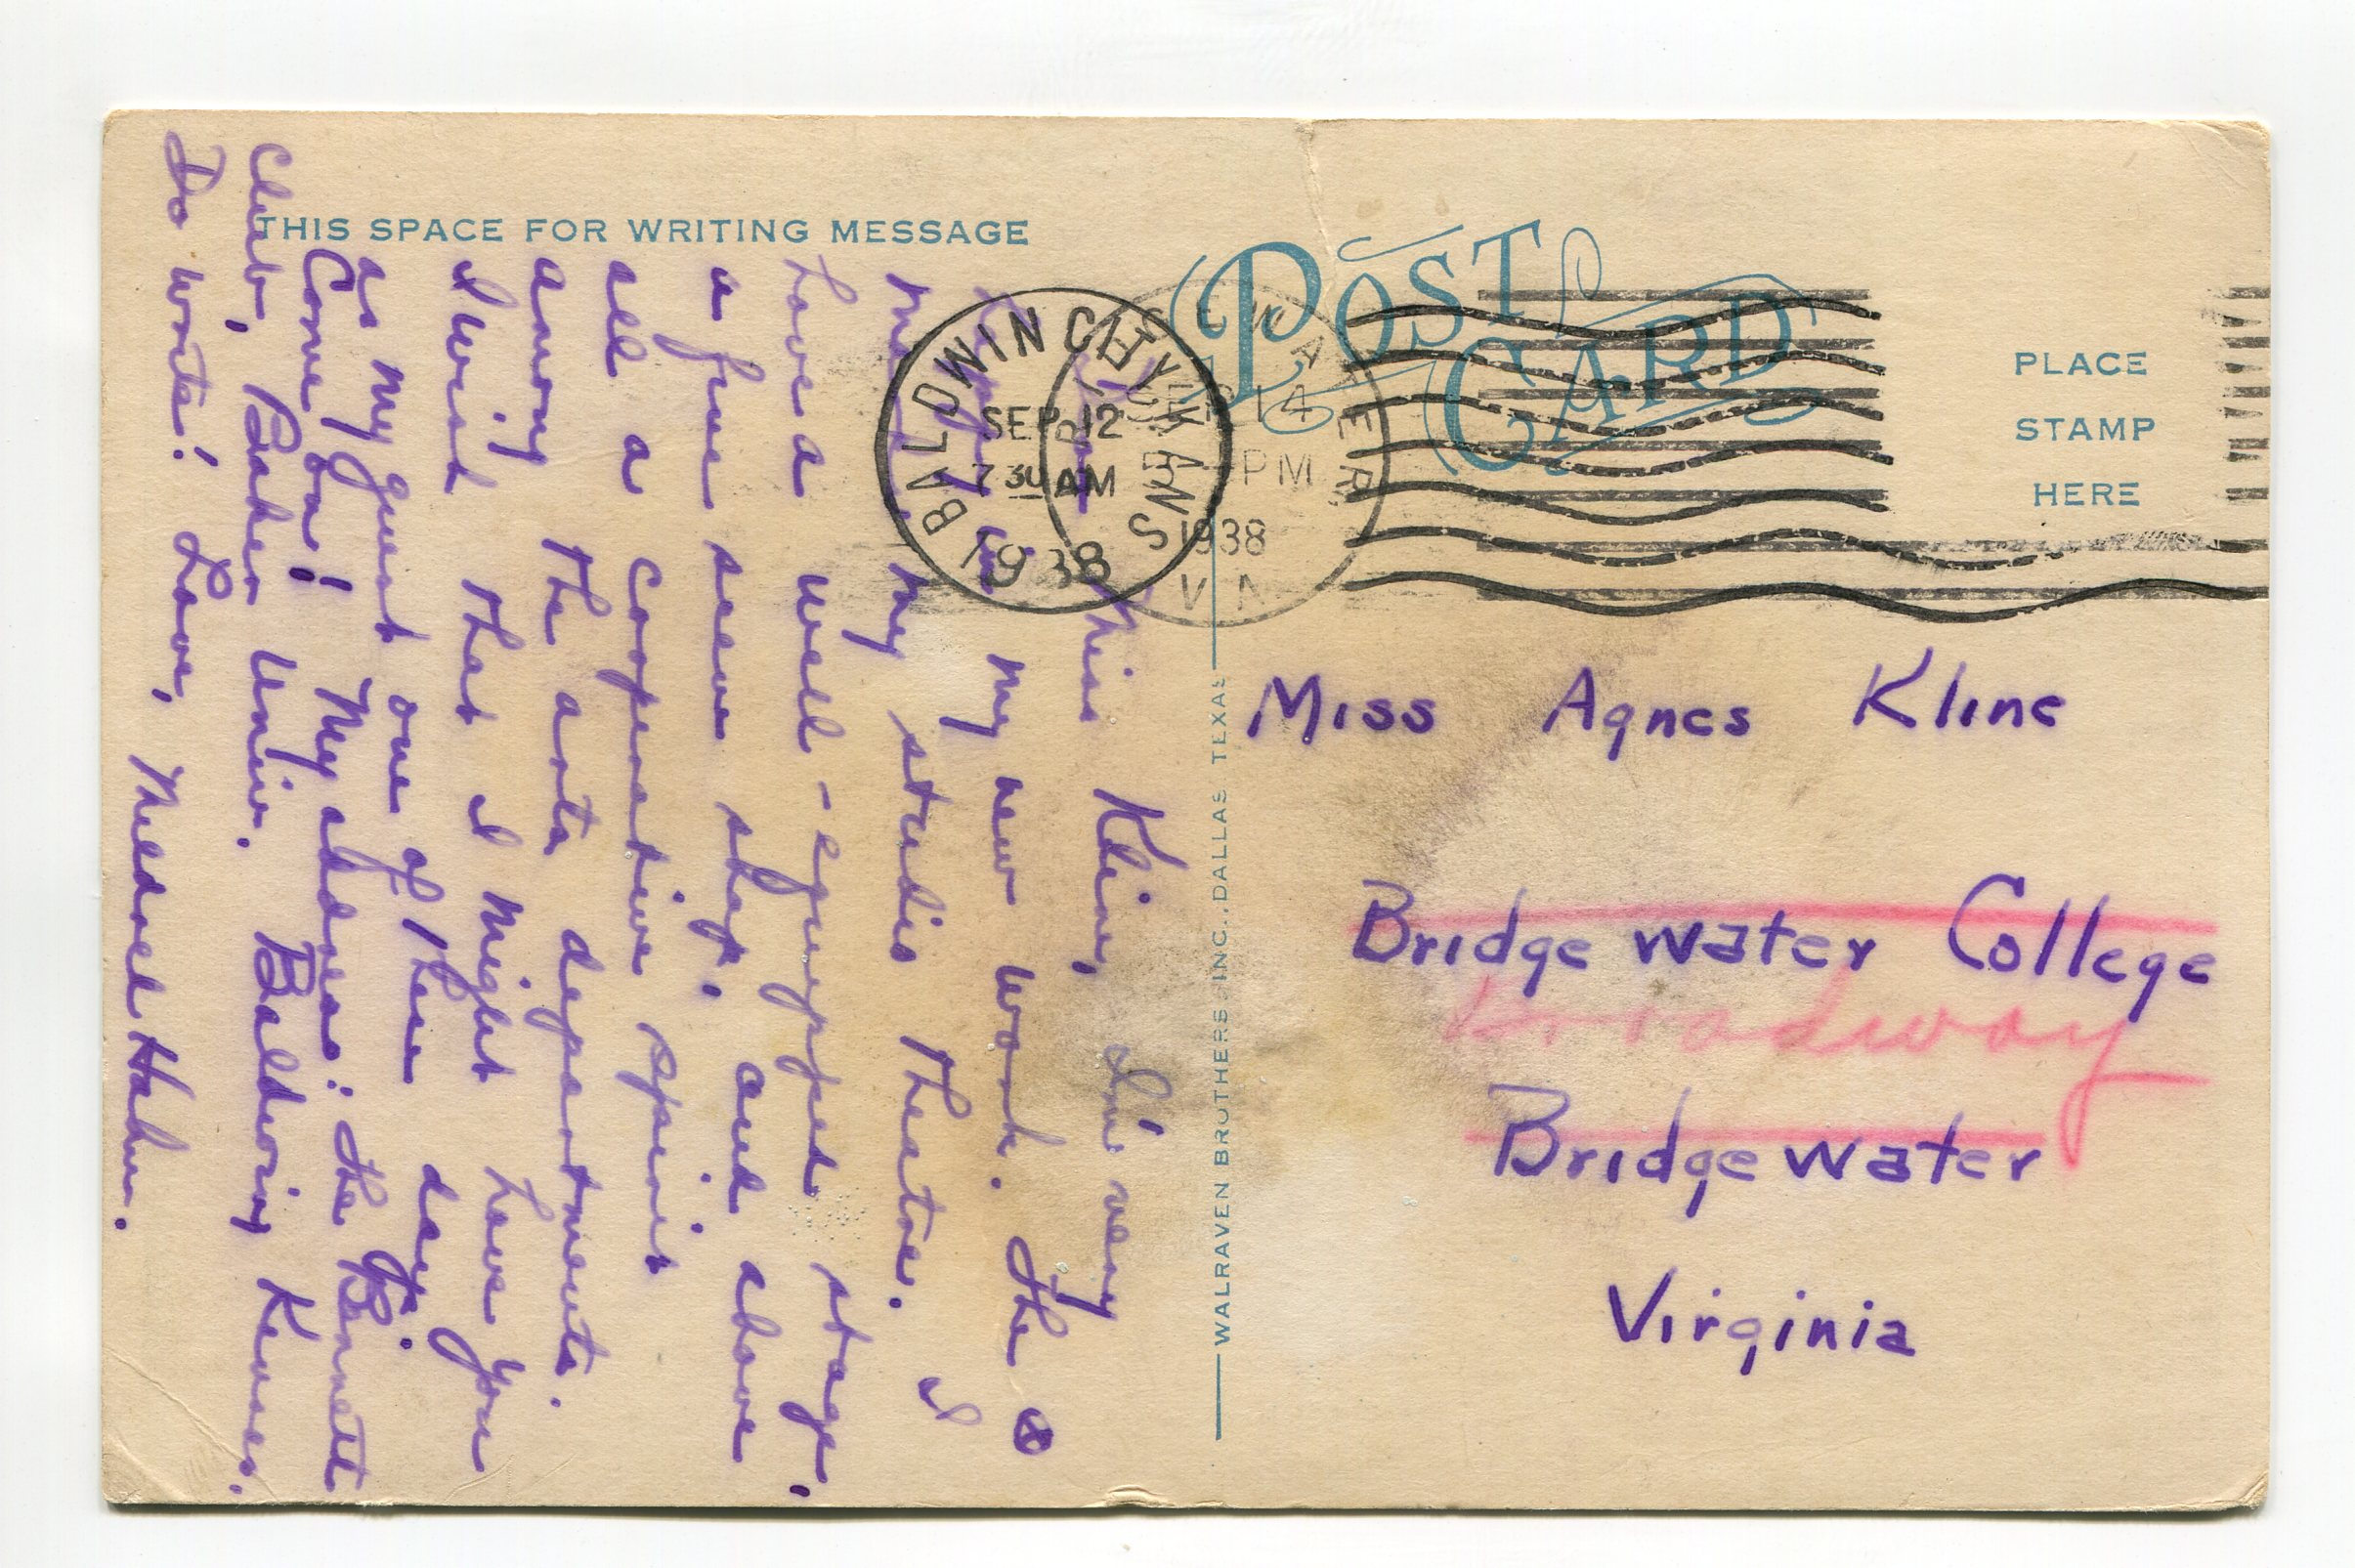 THIS SPACE FOR WRITING MESSAGE
POST CARD
PLACE
STAMP
HERE
BALDWIN CITY KANS
SEP 12
7 30 AM
1938
BRIDGEWATER
SEP 14
PM
1938
VA
Dear Miss Kline, I'm very
happy in my new work. The
me, my studio theatre. I
have a well-equipped stage,
a fine scene shop, and above
all a cooperative spirit
among the arts departments.
I wish that I might have you
as my guest one of these days.
Come on! My address: The Bennett
Club, Baker Univ. Baldwin, Kansas.
Do write! Love, Mildred Hahn.
WALRAVEN BROTHERS, INC., DALLAS TEXAS
Miss Agnes Kline
Bridgewater College
broadway
Bridgewater
Virginia